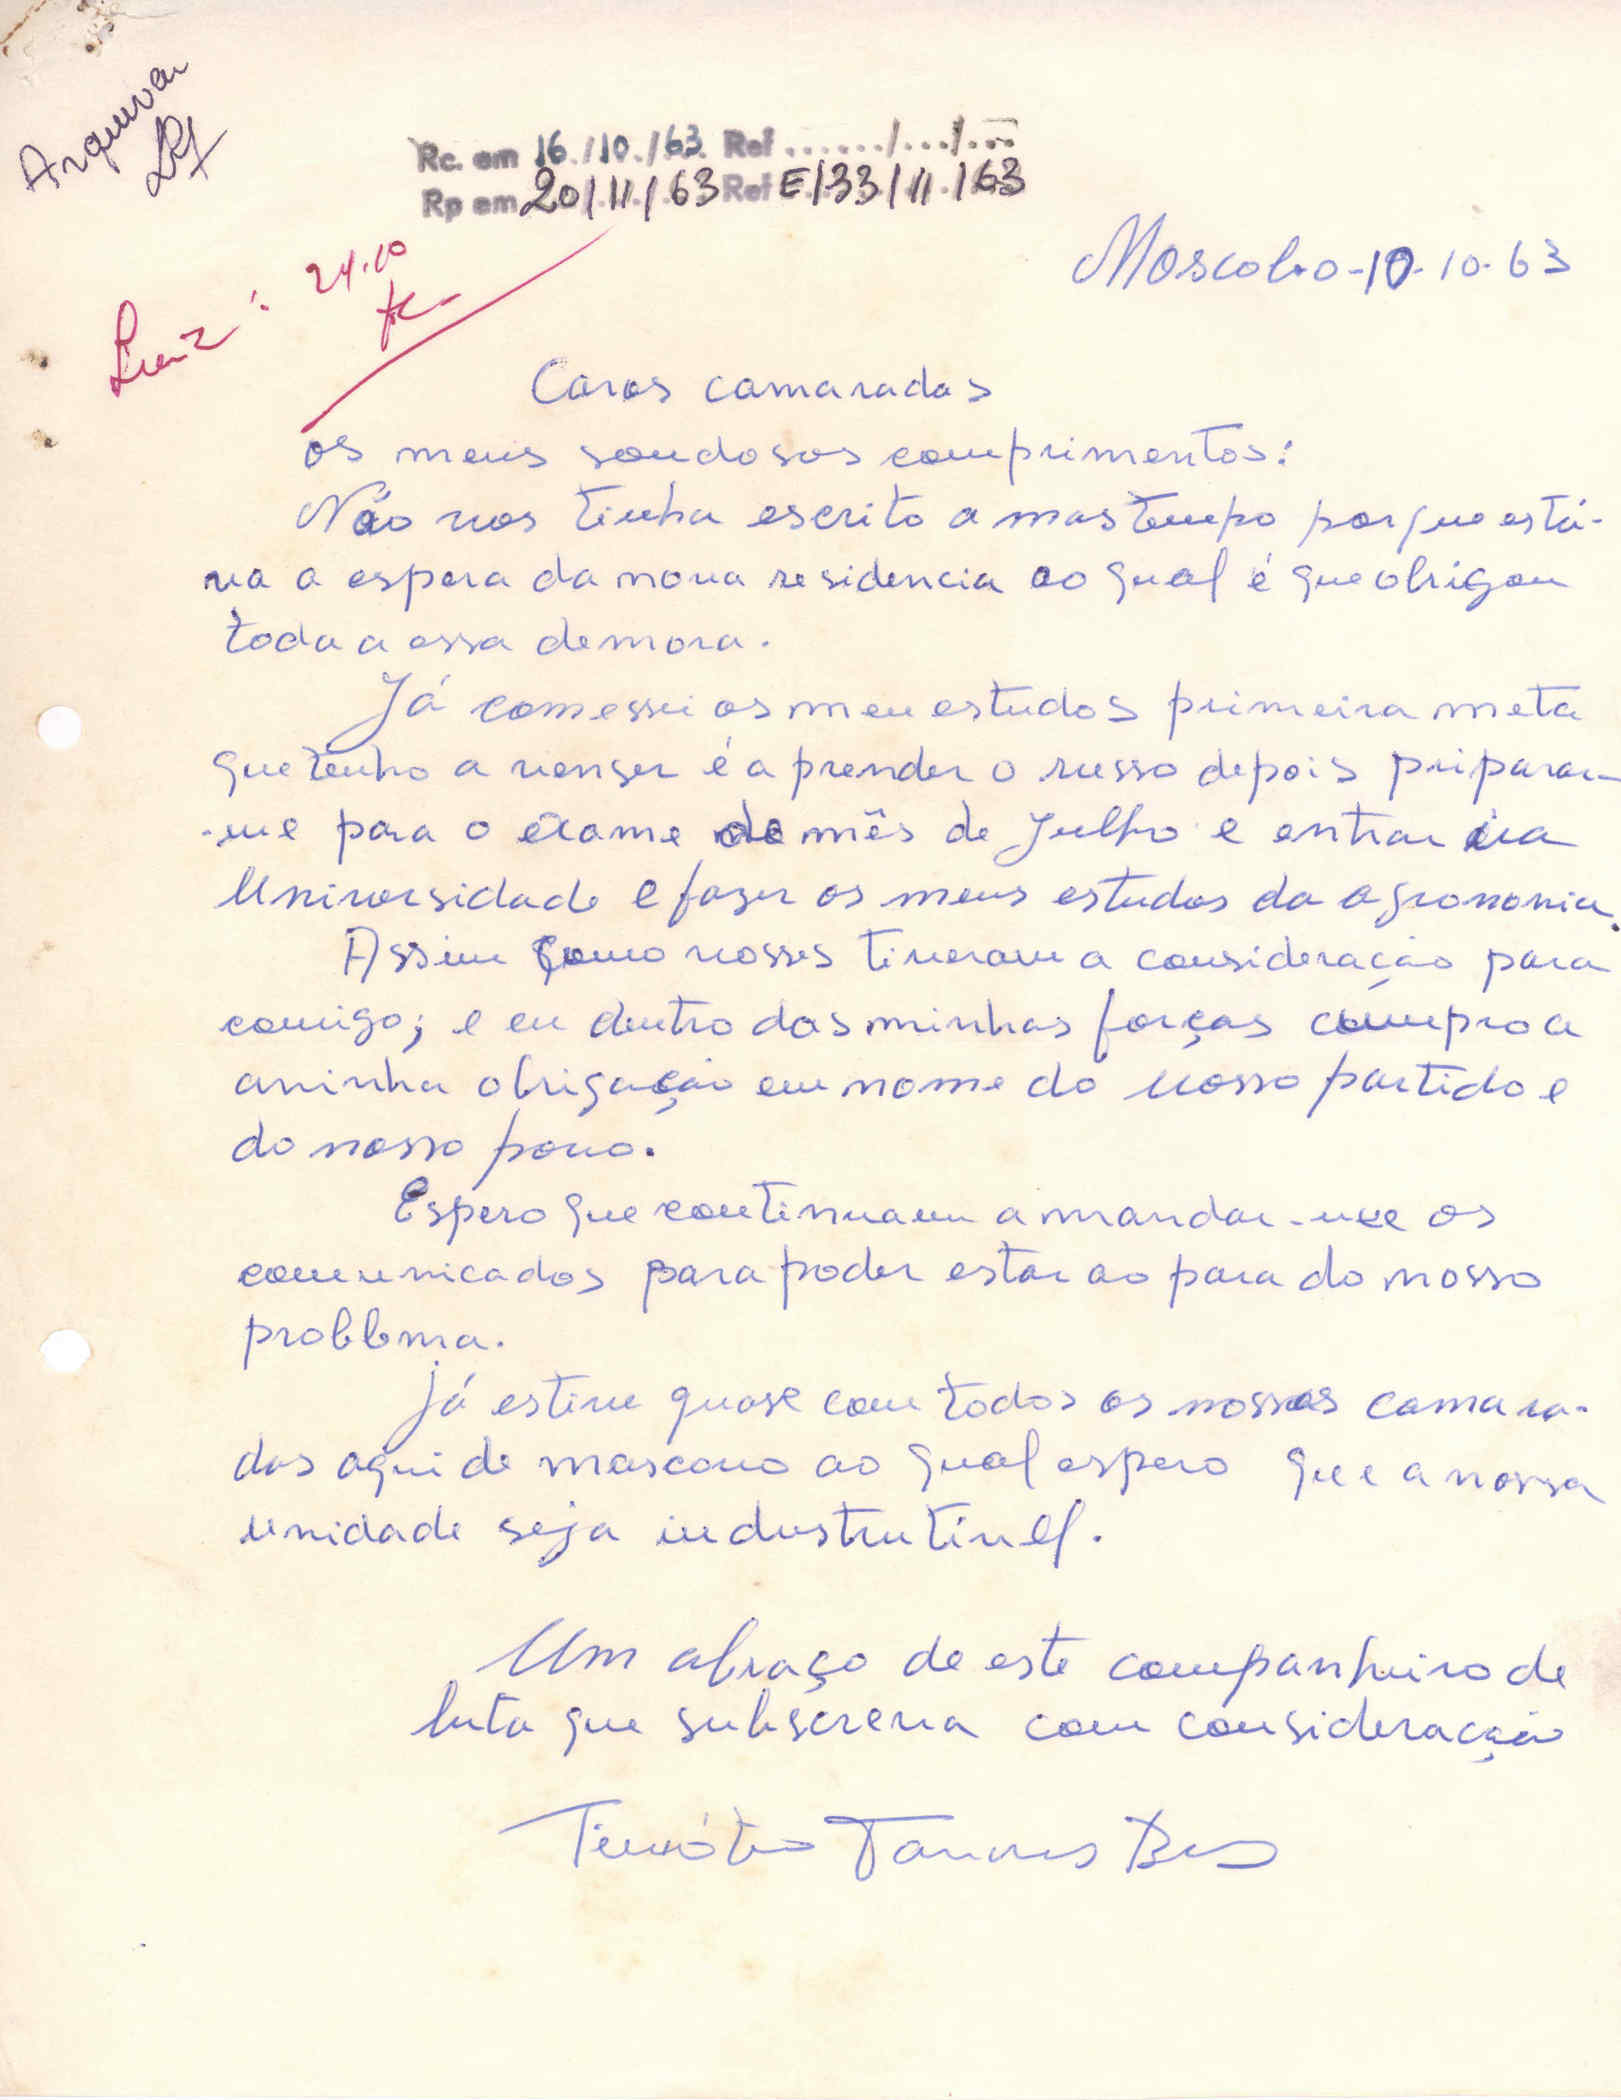 Arquivar
Rc. em 16/10/63 Ref ....../.../...
Rp em 20/11/63 Ref E/33/11/63
Luiz: 24.10
Moscovo-10-10-63
Caros camaradas
os meus soudosos comprimentos:
Não vos tinha escrito a mas tempo porque está-
va a espera da nova residencia ao qual é que obrigou
toda a essa demora.
Já comessei os meu estudos primeira meta
que tenho a venser é aprender o russo depois priparar-
-me para o exame de mês de Julho e entrar na
Universidade e fazer os meus estudos da agronomia.
Assim como vosses tiveram a consideração para
comigo; e eu dentro das minhas forças cumpro a
aminha obrigação em nome do nosso partido e
do nosso povo.
Espero que continuam a mandar-me os
comunicados para poder estar ao para do nosso
problema.
Já estive quase com todos os nossos camara-
das aqui de moscovo ao qual espero que a nossa
unidade seja industrutivel.
Um abraço de este companheiro de
luta que subscreva com consideração
Timótio Tavares